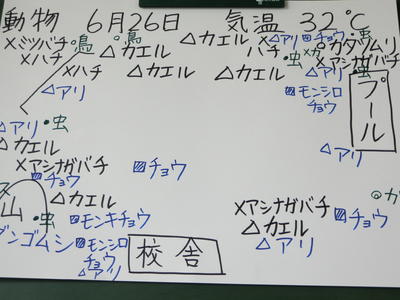 動物 6月26日 気温 32℃
×ミツバチ ・鳥 ○鳥 △カエル △カエル × △アリ ▨チョウ ・虫
×ハチ ハチ ・虫 ×ガ ○カタツムリ
×ハチ △カエル △カエル △カエル △アリ ×アシナガバチ
△アリ ▨モンシロチョウ ・虫
プール
△アリ ・虫 △アリ
△カエル
×アシナガバチ ▨チョウ
▨チョウ
山 △カエル ×アシナガバチ
・虫 ▨モンキチョウ △カエル ▨チョウ
ダンゴムシ ▨モンシロチョウ △アリ
△アリ 校舎